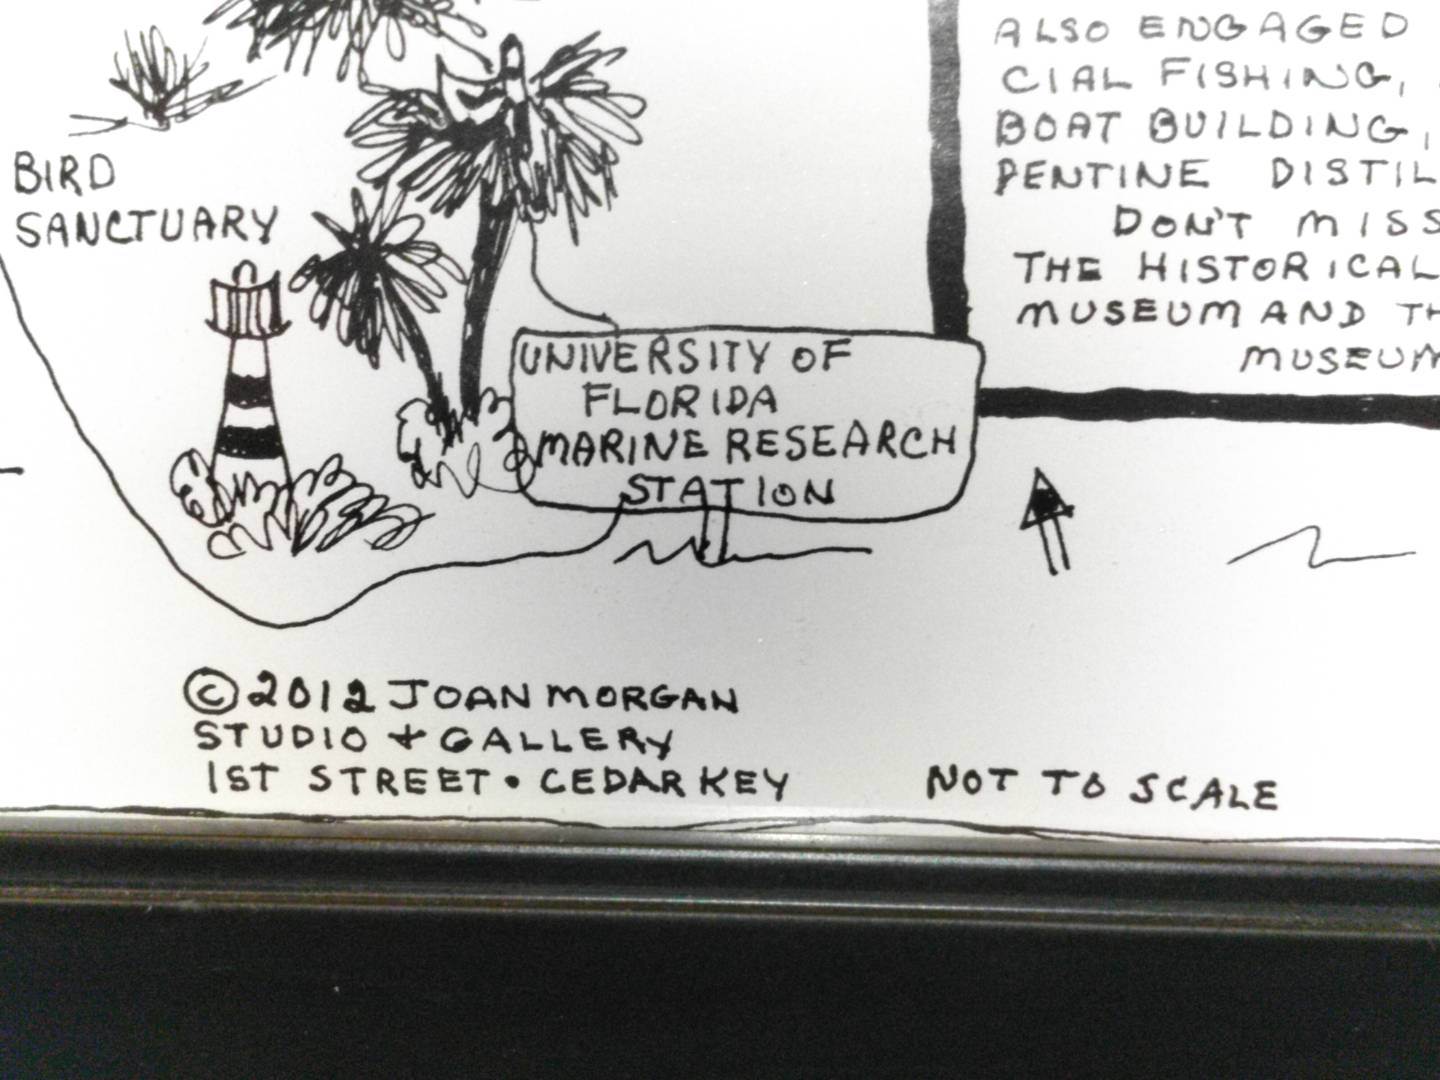 BIRD
SANCTUARY
UNIVERSITY OF
FLORIDA
MARINE RESEARCH
STATION
ALSO ENGAGED
CIAL FISHING,
BOAT BUILDING,
PENTINE DISTIL
DON'T MISS
THE HISTORICAL
MUSEUM AND TH
MUSEUM
© 2012 JOAN MORGAN
STUDIO + GALLERY
1ST STREET • CEDAR KEY
NOT TO SCALE